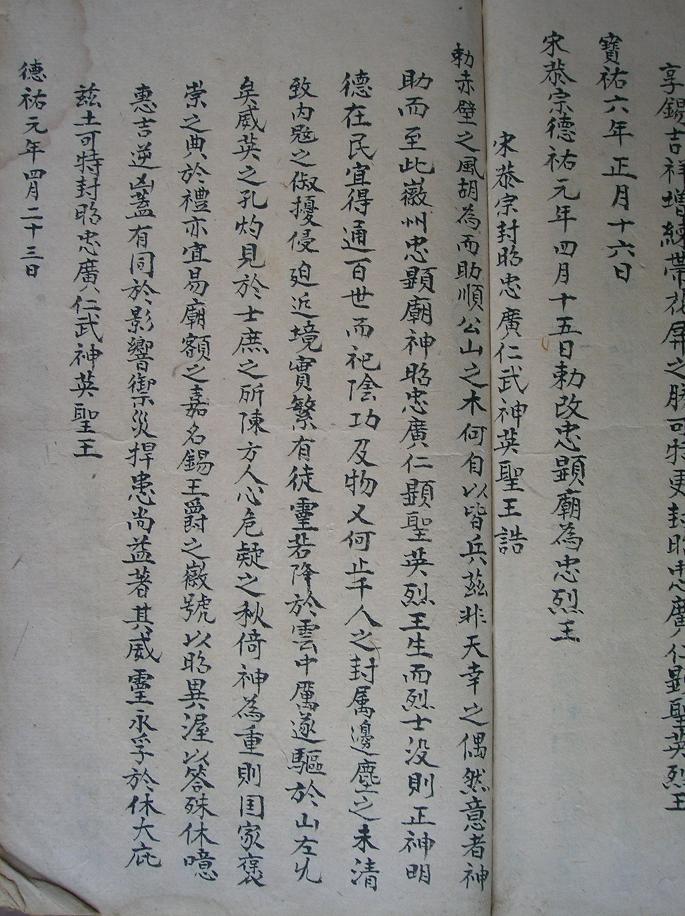 享錫吉祥增練帶花屏之勝可特更封昭忠廣仁顯聖英烈王
寶祐六年正月十六日
宋恭宗德祐元年四月十五日勅改忠顯廟為忠烈王
宋恭宗封昭忠廣仁武神英聖王誥
勅赤壁之風胡為而助順公山之木何自以皆兵茲非天幸之偶然意者神
助而至此徽州忠顯廟神昭忠廣仁顯聖英烈王生而烈士没則正神明
德在民宜得通百世而祀陰功及物又何止千人之封属邊塵之未清
致内寇之俶擾侵迫近境實繁有徒靈若降於雲中厲遂驅於山左允
矣威英之孔灼見於士庶之所陳方人心危疑之秋倚神為重則国家褒
崇之典於禮亦宜易廟額之嘉名錫王爵之徽號以昭異渥以答殊休噫
惠吉逆凶蓋有同於影響禦災捍患尚益著其威靈永孚於休大庇
茲土可特封昭忠廣仁武神英聖王
德祐元年四月二十三日